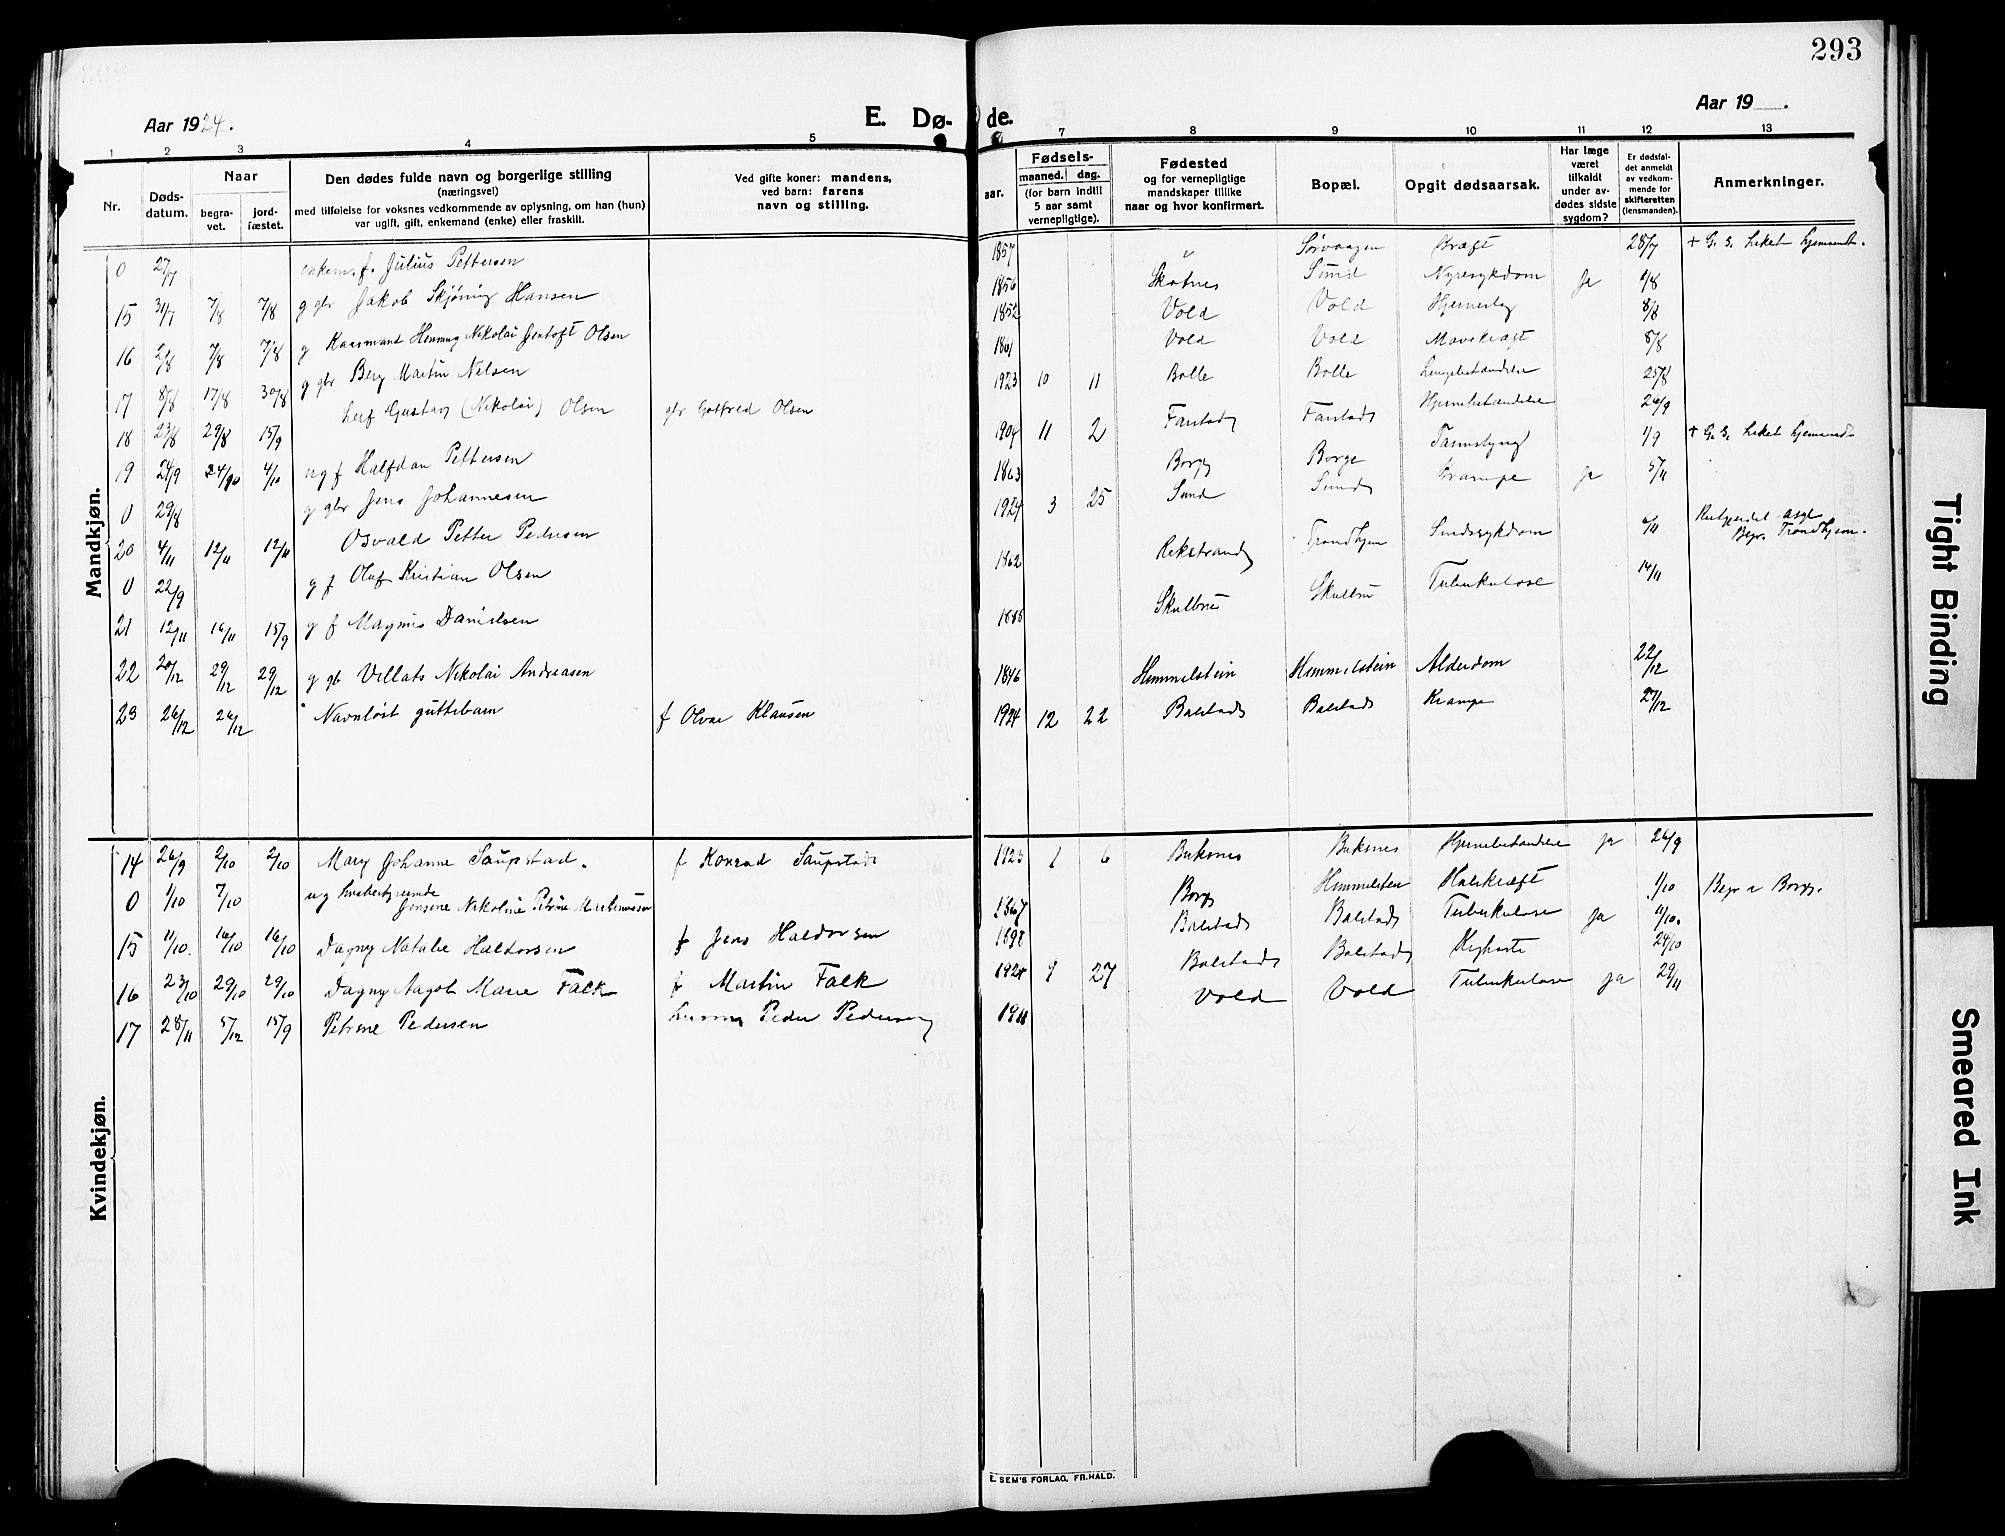 293
Aar 1924.
E. Dø-
de.
Aar 19 .
1 2 3 4 5 7 8 9 10 11 12 13
Nr.
Døds-
datum.
Naar
begra-
vet.
jord-
fæstet.
Den dødes fulde navn og borgerlige stilling
(næringsvei)
med tilføielse for voksnes vedkommende av oplysning, om han (hun)
var ugift, gift, enkemand (enke) eller fraskilt.
Ved gifte koner: mandens,
ved barn: farens
navn og stilling.
aar.
Fødsels-
maaned. dag.
(for barn indtil
5 aar samt
vernepligtige).
Fødested
og for vernepligtige
mandskaper tillike
naar og hvor konfirmert.
Bopæl.
Opgit dødsaarsak.
Har læge
været
tilkaldt
under av-
dødes sidste
sygdom?
Er dødsfal-
det anmeldt
av vedkom-
mende for
skifteretten
(lensmanden).
Anmerkninger.
Mandkjøn.
0 27/7 enkem. f. Julius Pettersen 1857 " Sørvaagen Kræft 28/7
15 31/7 7/8 7/8 g gbr Jakob Skjøning Hansen 1856 Skotnes Sund Nyresykdom Ja 1/8
16 2/8 7/8 7/8 g Henning Nikolai Jentoft Olsen 1852 Vold Vold Hjerneslag 8/8
17 8/8 17/8 30/8 g gbr Berg Martin Nilsen 1861 Vold Vold Mavekræft 8/8
18 23/8 29/8 15/9 Leif Gustav (Nikolai) Olsen gbr Gotfred Olsen 1923 10 11 Bolle Bolle Lungebetændelse 25/8
19 24/9 4/10 ug f Halfdan Pettersen 1904 11 2 Farstad Farstad Hjernebetændelse 26/9
0 29/8 g gbr Jens Johannesen 1863 Borge Borge 1/9
20 4/11 12/11 12/11 Osvald Petter Pedersen 1924 3 25 Sund Sund Krampe Ja 5/11
0 22/9 g f Oluf Kristian Olsen 1862 Rekstrand Trondhjem 6/11 Begr. Trondhjem.
21 12/11 16/11 15/9 g f Magnus Danielsen Skulbru Skulbru Tuberkulose 14/11
22 20/12 29/12 29/12 g gb Villats Nikolai Andreasen 1846 Himmelstein Himmelstein Alderdom 22/12
23 26/12 26/12 Navnløst guttebarn f Olvar Klausen 1924 12 22 Balstad Balstad Krampe 27/12
Kvindekjøn.
14 26/9 2/10 2/10 Mary Johanne Saupstad. f Konrad Saupstad 1923 1 6 Buksnes Buksnes Hjernebetændelse Ja 26/9
0 1/10 7/10 ug Jensine Nikoline Petrine Martinussen 1867 Borge Himmelsten Halskræft 1/10 Begr i Borge.
15 11/10. 16/10 16/10 Dagny Natalie Haldorsen f Jens Haldorsen 1898 Balstad Balstad Tuberkulose Ja 11/10.
16 23/10 29/10 29/10 Dagny Aagot Marie Falk f Martin Falk 9 27 Balstad Balstad Kighoste 24/10
17 28/11 5/12 15/9 Petrine Pedersen Peder Pedersen Vold Vold Tuberkulose Ja 29/11
E. SEM'S FORLAG, FR.HALD.
Tight Binding
Smeared Ink